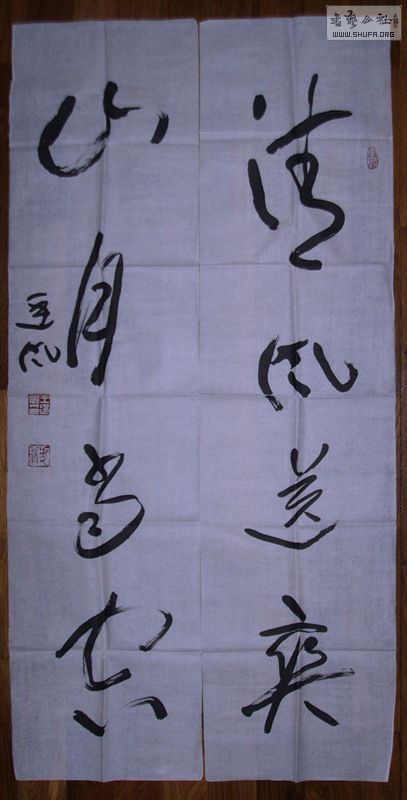 書藝公社
WWW.SHUFA.ORG
清风送爽
山月当窗